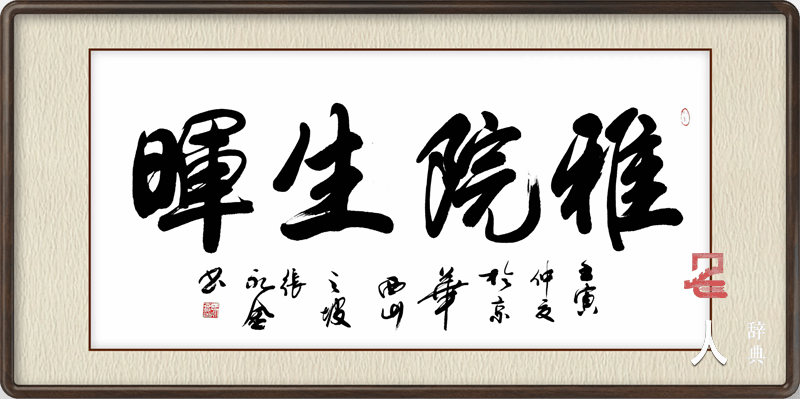 雅院生暉
壬寅仲夏於京華西山之坡張永金书
名人
辞典